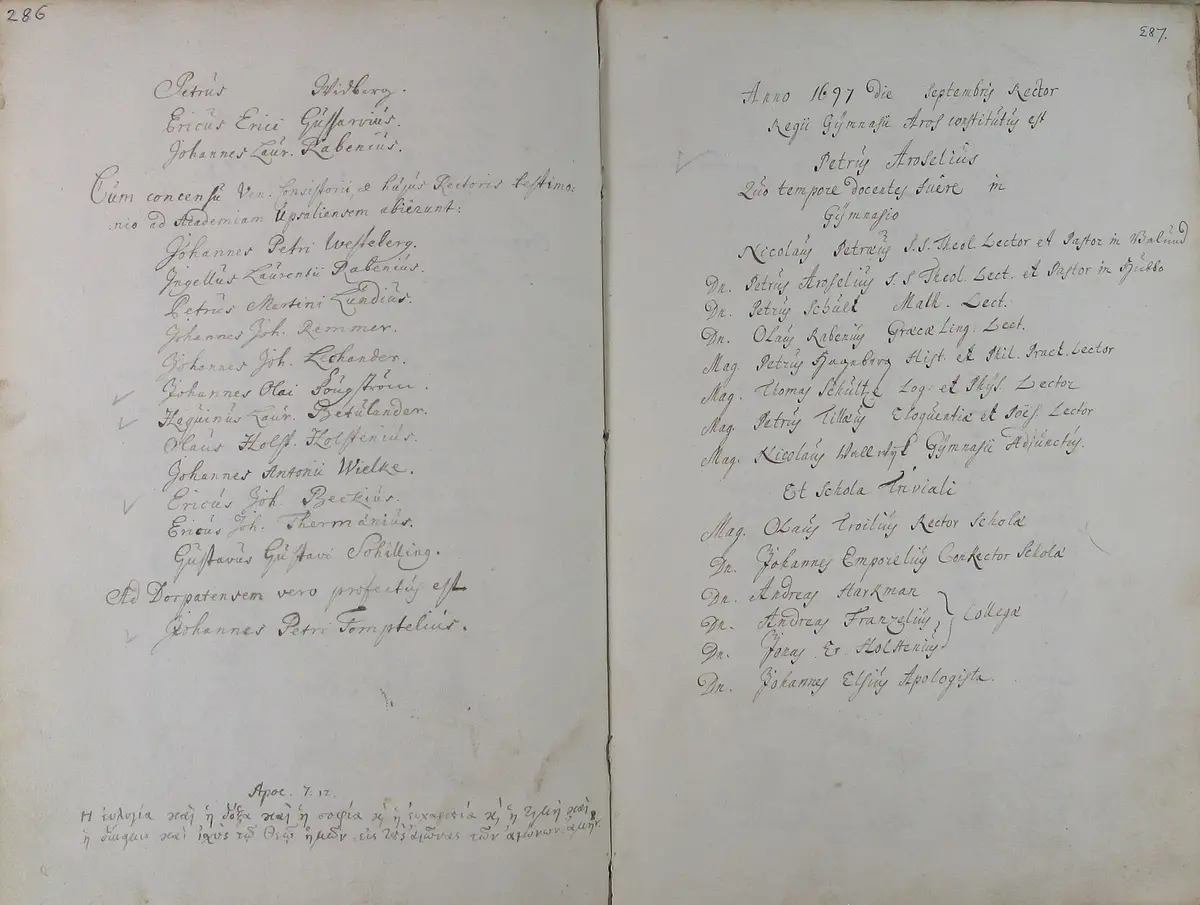 286
Petrus Widberg.
Ericus Erici Gussarvius.
Johannes Laur. Rabenius.
Cum concensu Ven. Consistorii, æ hujus Rectoris testimo:
:nio ad Academiam Upsaliensem abierunt:
Johannes Petri Westeberg.
Ingellus Laurentii Rabenius.
Petrus Martini Lundius.
Johannes Joh. Remmer.
Johannes Joh. Lechander.
Johannes Olai
Haquinus Laur. Betulander.
Olaus Holst. Holstenius.
Johannes Antonii Wielke.
Ericus Joh. Beckius.
Ericus Joh. Thermænius.
Gustavus Gustavi Schilling.
Ad Dorpatensem vero profectus est
Johannes Petri Tomptelius.
Apoc. 7. 12.
Η ἐυλογία καὶ ἡ δόξα καὶ ἡ σοφία κ̀ ἡ ἐυχαριστία κ̀ ἡ τιμὴ καὶ
ἡ δύναμις καὶ ἰσχὺς τῷ Θεῷ ἡμῶν εἰς τοὺς αἰῶνας τῶν αἰώνων. ἀμήν.
287.
Anno 1697 die Septembris Rector
Regii Gymnasii Aros constitutus est
Petrus Aroselius
Quo tempore docentes fuere in
Gymnasio
Nicolaus Petræus S.S. Theol. Lector et Pastor in Balund
Dn. Petrus Aroselius S.S Theol. Lect. et Pastor in Hubbo
Dn. Petrus Schult Math. Lect.
Dn. Olaus Rabenius Græcæ Ling: Lect.
Mag. Petrus Hagnberg Hist. et Phil. Pract. Lector
Mag. Thomas Schultz Log: et Phys. Lector
Mag. Petrus Tillæus Eloquentiæ et Poës. Lector
Mag. Nicolaus Wallwyk Gymnasii Adjunctus.
Et Schola Triviali
Mag. Olaus Troilius Rector Scholæ
Dn. Johannes Emporelius ConRector Scholæ
Dn. Andreas Harkman
Dn. Andreas Franzelius, Collegæ
Dn. Jonas Er. Holstenius
Dn. Johannes Elfius Apologista.